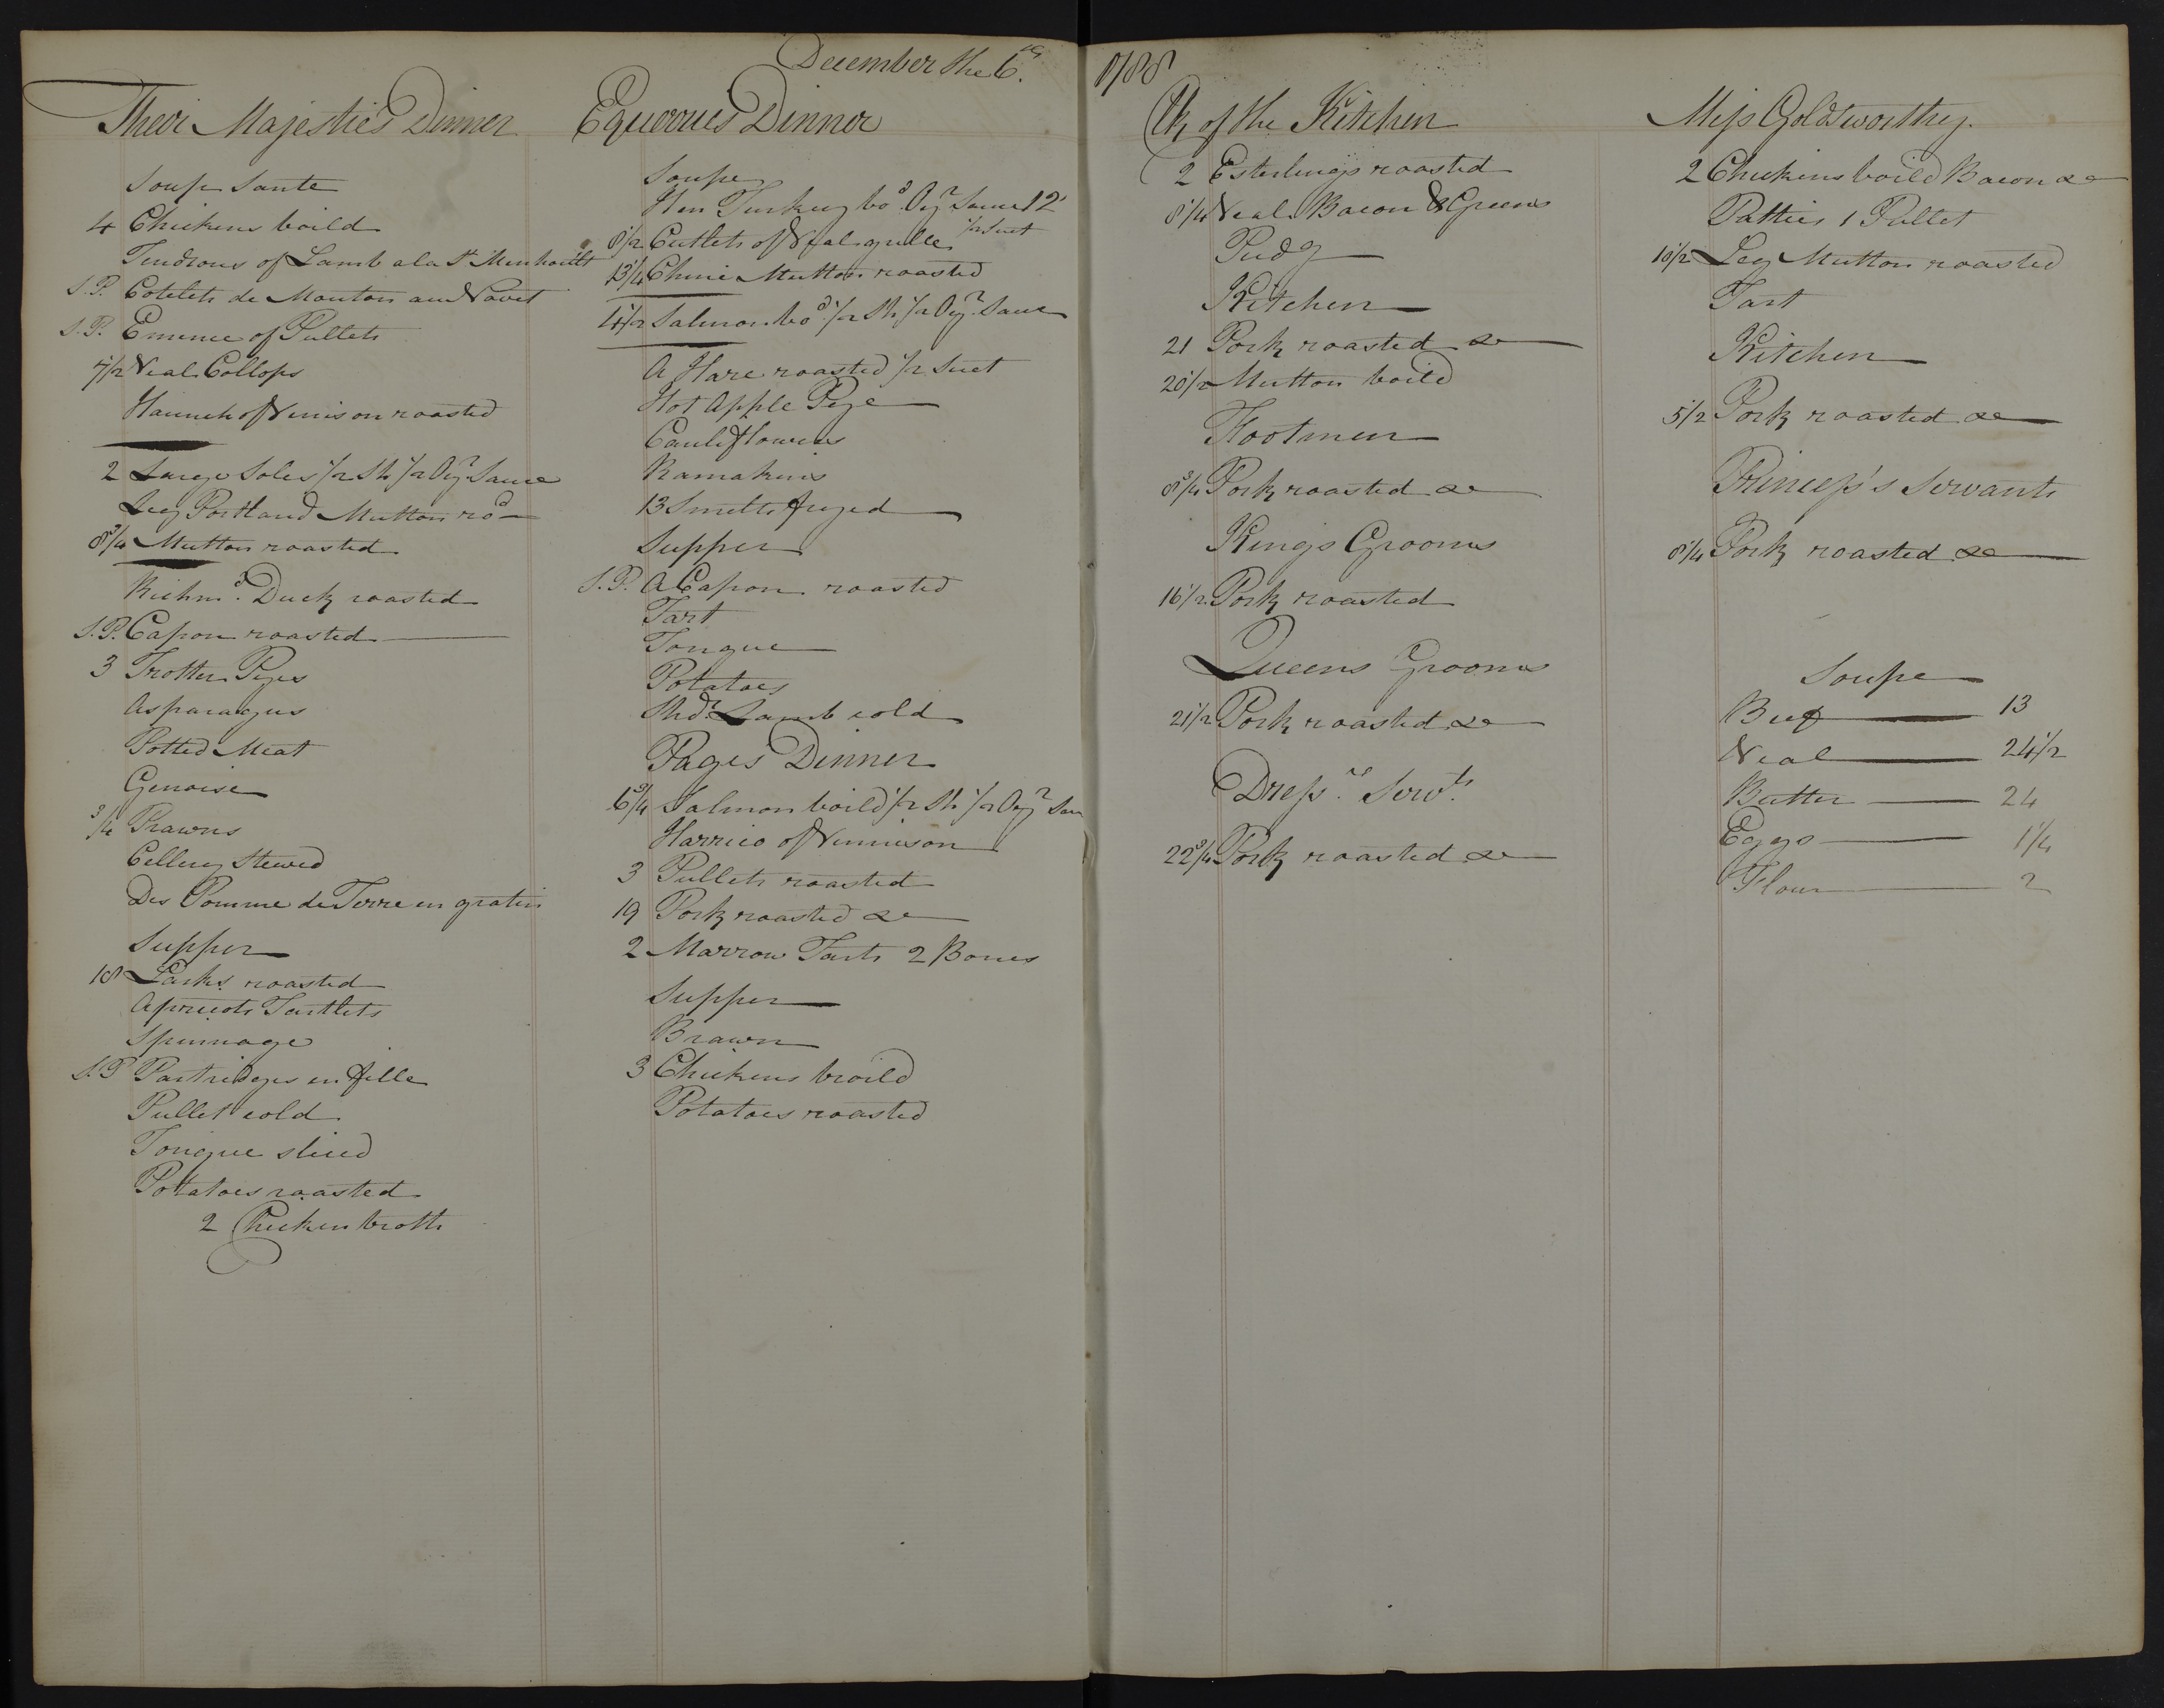 December the 6th 1788
Their Majesties Dinner
Soup Sante
4 Chickens boild
Tendrons of Lamb a la St Menhoult
S.P. Cotelets de Mouton and Navet
S.P. Emence of Pullets
7 1/2 Veal Collops
Haunch of Vennison roasted
2 Large Soles 1/2 Sh 1/2 Oyr Sauce
Leg Portland Mutton rod
8 3/4 Mutton roasted
Richmd Duck roasted
S.P. Capon roasted
3 Trotter Pyes
Asparagus
Potted Meat
Genoise
3/4 Prawns
Cellery Stewed
Des Pomme de Terre en gratin
Supper
18 Larks roasted
Apricots Tartlets
Spinnage
S.P. Partridges en fille
Pullet cold
Tongue sliced
Potatoes roasted
2 Chicken broth
Equerries Dinner
Soupe
Hen Turkey bod Oyr Sauce 12
1/2 Suet
8 1/2 Cutlets of Veal grille
13 1/4 Chine Mutton roasted
4 1/2 Salmon bod 1/2 Sh 1/2 Oyr Sauce
A Hare roasted 1/2 Suet
Hot Apple Pye
Cauliflowers
Ramakins
13 Smelts fryed
Supper
S.P. A Capon roasted
Tart
Tongue
Potatoes
Shdr Lamb cold
Pages Dinner
6 3/4 Salmon boild 1/2 Sh 1/2 Oyr Sau
Harrico of Vennison
3 Pullets roasted
19 Pork roasted &c
2 Marrow Tarts 2 Bones
Supper
Brawn
3 Chickens broild
Potatoes roasted
Ck of the Kitchen
2 Esterlings roasted
8 1/4 Veal Bacon & Greens
Pudg
Kitchen
21 Pork roasted &c
20 1/2 Mutton boild
Footmen
8 3/4 Pork roasted &c
Kings Grooms
16 1/2 Pork roasted
Queens Grooms
21 1/2 Pork roasted &c
Dressrs Servts
22 3/4 Pork roasted &c
Miss Goldsworthy
2 Chickens boild Bacon &c
Patties 1 Pullet
10 1/2 Leg Mutton roasted
Tart
Kitchen
5 1/2 Pork roasted &c
Princess's Servants
8 1/4 Pork roasted &c
Soupe
Beef 13
Veal 24 1/2
Butter 24
Eggs 1 1/4
Flour 2